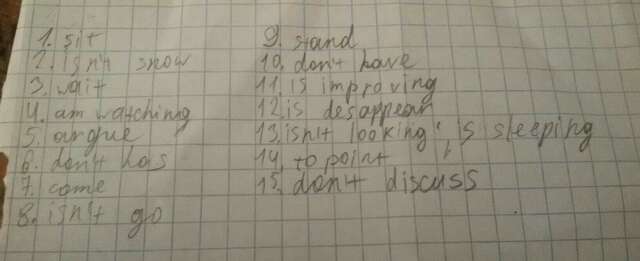 1. sit
2. isn't snow
3. wait
4. am watching
5. argue
6. don't has
7. come
8. isn't go
9. stand
10. don't have
11. is improving
12. is desappear
13. isn't looking, is sleeping
14. to point
15. don't discuss